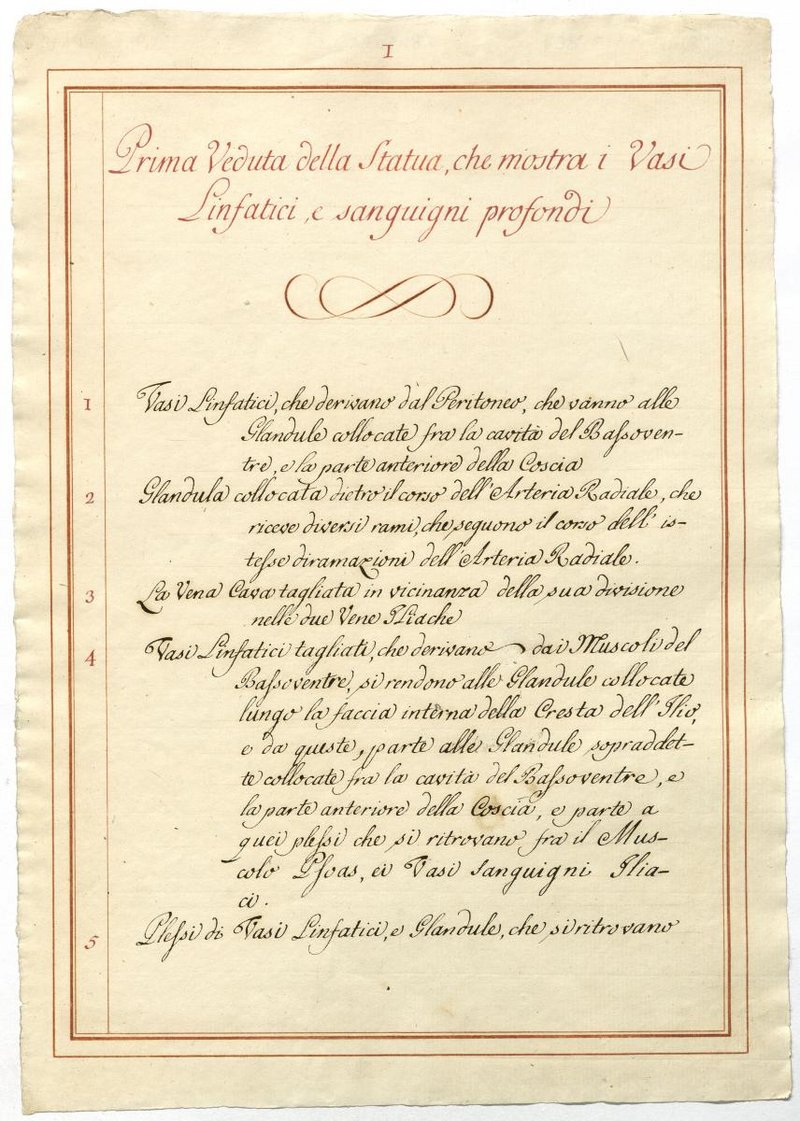 I
Prima Veduta della Statua, che mostra i Vasi
Linfatici, e sanguigni profondi
1 Vasi Linfatici, che derivano dal Peritoneo, che vanno alle
Glandule collocate fra la cavità del Bassoven-
tre, e la parte anteriore della Coscia
2 Glandula collocata dietro il corso dell'Arteria Radiale, che
riceve diversi rami, che seguono il corso dell' is-
tesse diramazioni dell'Arteria Radiale.
3 La Vena Cava tagliata in vicinanza della sua divisione
nelle due Vene Iliache
4 Vasi Linfatici tagliati, che derivano dai Muscoli del
Bassoventre, si rendono alle Glandule collocate
lungo la faccia interna della Cresta dell'Ilio,
e da queste, parte alle Glandule sopraddet-
te collocate fra la cavità del Bassoventre, e
la parte anteriore della Coscia, e parte a
quei plessi che si ritrovano fra il Mus-
colo Psoas, ei Vasi sanguigni Ilia-
ci.
5 Plessi di Vasi Linfatici, e Glandule, che si ritrovano